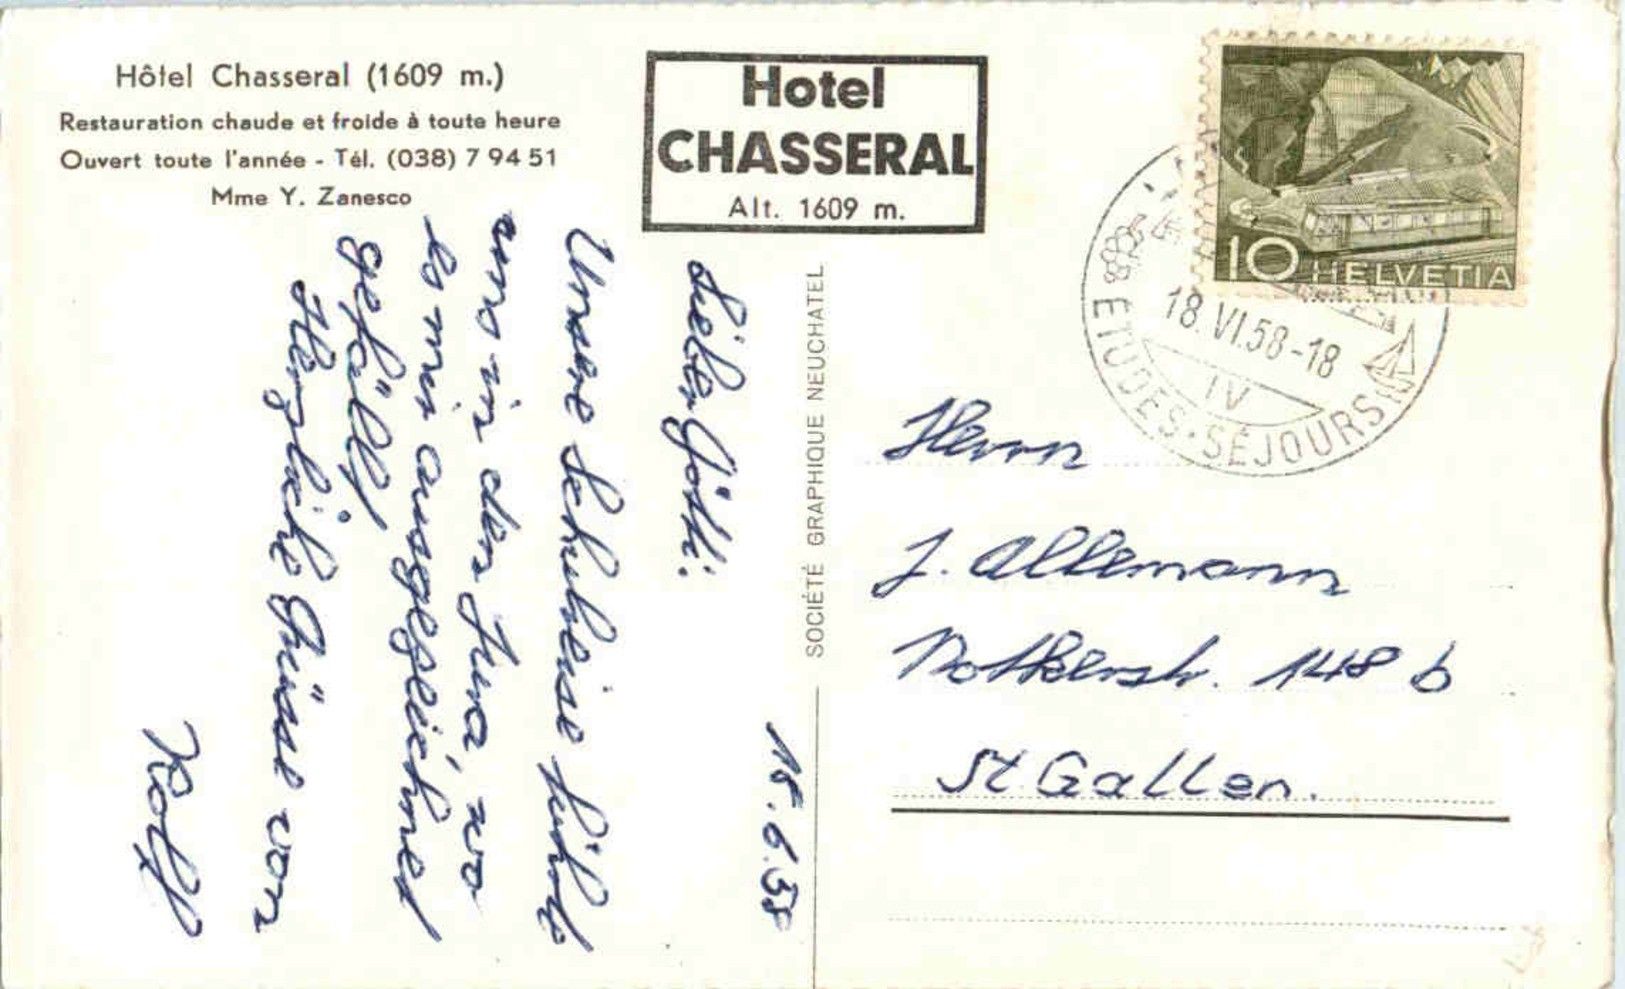 Hôtel Chasseral (1609 m.)
Restauration chaude et froide à toute heure
Ouvert toute l'année - Tél. (038) 7 94 51
Mme Y. Zanesco
Hotel
CHASSERAL
Alt. 1609 m.
10 HELVETIA
18.VI.58-18
IV
ÉTUDES · SÉJOURS
SOCIÉTÉ GRAPHIQUE NEUCHATEL
Lieber Götti:
Unsere Schulreise führte
uns in den Jura, wo
es mir ausgezeichnet
gefällt
Herzliche Grüsse von
Rolf
Herrn
J. Allemann
Notkerstr. 148 b
St. Gallen.